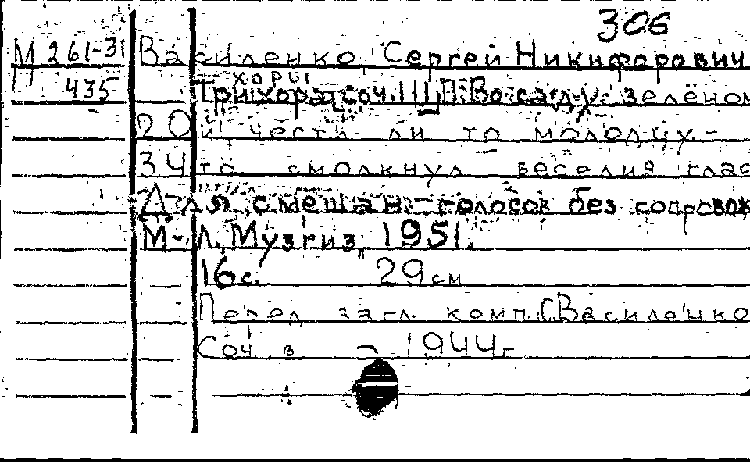 306
М 261-31 Василенко, Сергей Никифорович
хоры
435 Три хора, соч. 111 1) Во саду зелёном
2) Ой, честь ли то молодцу. -
3) Что смолкнул веселия глас
Для смешан. голосов без сопровож
М.-Л., Музгиз, 1951.
16 с. 29 см
Перед загл. комп.: С. Василенко
Соч. в 1944 г.